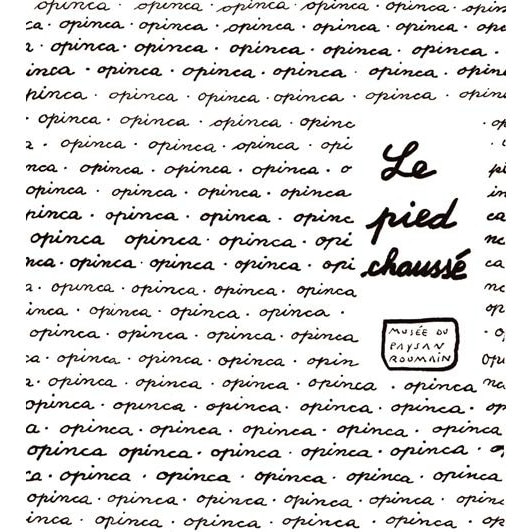 opinca · opinca · opinca · opinca · opinca · opin
ca · opinca · opinca · opinca · opinca · opinca · op
a · opinca · opinca · opinca · opinca · opinca ·
inca · opinca · opinca · opinca · opinca · opin
pinca · opinca · opinca · opinca · opinca · opin
· opinca · opinca · opinca · opinc · o
a · opinca · opinca · opinca · opi
nca · opinca · opinca · opinca · o
opinca · opinca · opinca · opinca in
pinca · opinca · opinca · opinc ca
opinca opinca · opinca · opi
nca · opinca · opinca · opinca · opi ca
a · opinca · opinca · opinca · opinca
inca · opinca · opinca · opinca · op
opinca · opinca · opinca · opinca · o
ca · opinca · opinca · opinca · opin
Le
pied
chaussé
MUSÉE DU
PAYSAN
ROUMAIN
a · opinca · opinca · opinca · opinca · opinca
opinca · opinca · opinca · opinca · opinca · op
a · opinca · opinca · opinca · opinca · opinca ·
opinca opinca · opinca · opinca · opinca ·
ca · opinca · opinca · opinca · opinca · opinca
opinca · opinca · opinca · opinca · opinca · op
inca · opinca · opinca · opinca · opinca · o